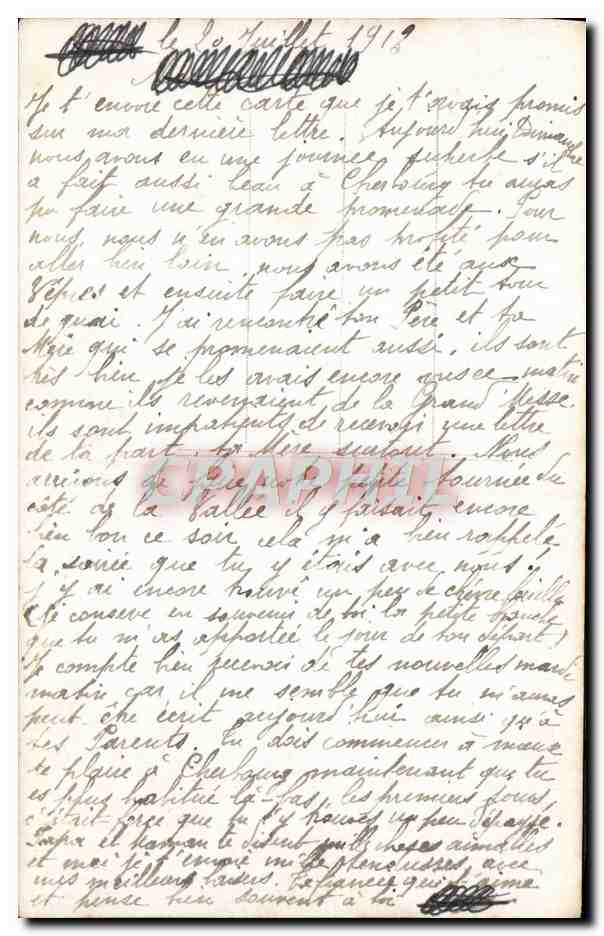 le 20 Juillet 191
Je t'envoie cette carte que je t'avais promis
sur ma dernière lettre. Aujourd'hui Dimanche
nous avons eu une journée superbe s'il
a fait aussi beau à Cherbourg tu auras
pu faire une grande promenade. Pour
nous, nous n'en avons pas profité pour
aller bien loin, nous avons été aux
Vêpres et ensuite faire un petit tour
de quai. J'ai rencontré ton Père et ta
Mère qui se promenaient aussi, ils sont
très bien je les avais encore vus ce matin
comme ils revenaient de la Grand' Messe.
ils sont impatients de recevoir une lettre
de ta part, ta Mère surtout. Nous
arrivons de faire notre petite tournée du
côté de la Vallée il y faisait encore
bien bon ce soir cela m'a bien rappelé
la soirée que tu y étais avec nous.
J'y ai encore trouvé un peu de chèvrefeuille
(je conserve en souvenir de toi la petite branche
que tu m'as apportée le jour de ton départ)
Je compte bien recevoir de tes nouvelles mardi
matin car il me semble que tu m'auras
peut-être écrit aujourd'hui ainsi qu'à
tes Parents. Tu dois commencer à mieux
te plaire à Cherbourg maintenant que tu
es plus habitué là-bas, les premiers jours,
c'était forcé que tu t'y trouves un peu dépaysé.
Papa et Maman te disent mille choses aimables
et moi je t'envoie mille tendresses avec
mes meilleurs baisers. Ta fiancée qui t'aime
et pense bien souvent à toi
CPAPHIL